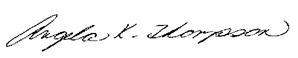 Angela K. Thompson